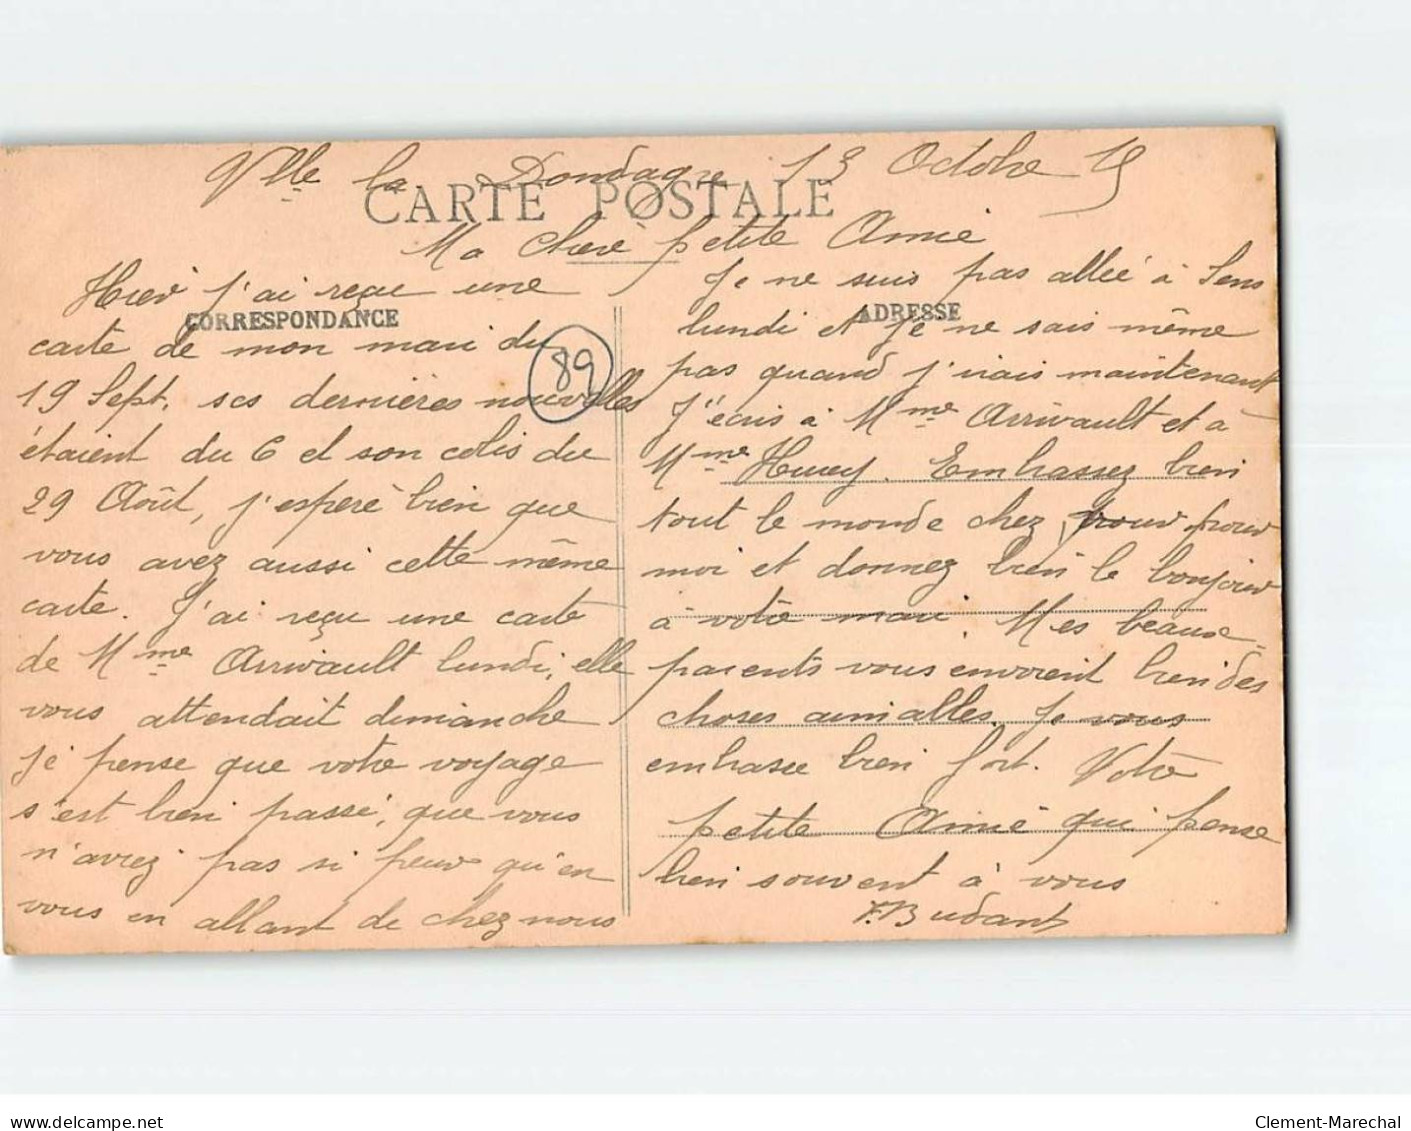 Vlle la Dondagre 13 Octobre 15
CARTE POSTALE
Ma chère petite Amie
CORRESPONDANCE
Hier j'ai reçu une
carte de mon mari du
19 Sept. ses dernières nouvelles
étaient du 6 et son colis du
29 Août, j'espère bien que
vous avez aussi cette même
carte. J'ai reçu une carte
de Mme Arrivault lundi, elle
vous attendait dimanche
je pense que votre voyage
s'est bien passé, que vous
n'aviez pas si peur qu'en
vous en allant de chez nous
89
ADRESSE
Je ne suis pas allée à Sens
lundi et je ne sais même
pas quand j'irais maintenant
J'écris à Mme Arrivault et à
Mme Huey. Embassez bien
tout le monde chez vous pour
moi et donnez bien le bonjour
à votre mari. Mes beaux-
parents vous envoient bien des
choses aimables. Je vous
embrasse bien fort. Votre
petite Amie qui pense
bien souvent à vous
F. Budant
Clement-Marechal
www.delcampe.net